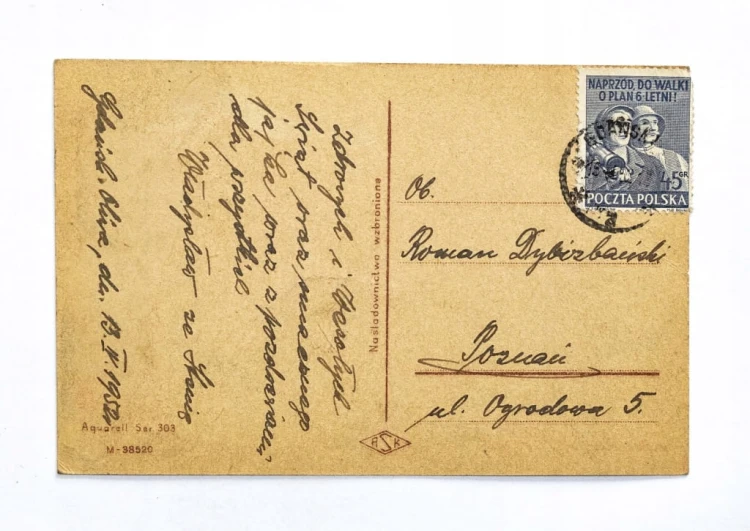 Gdańsk-Oliwa, dn. 13.IV.1952
Zdrowych i Wesołych
Świąt oraz smacznego
jajka, wraz z pozdrowieniami
dla wszystkich
Władysław ze Stasią
Aquarell Ser 303
M-38520
Naśladownictwo wzbronione
ASK
NAPRZÓD, DO WALKI
O PLAN 6-LETNI!
45 GR
POCZTA POLSKA
GDAŃSK
Ob.
Roman Dybizbański
Poznań
ul. Ogrodowa 5.